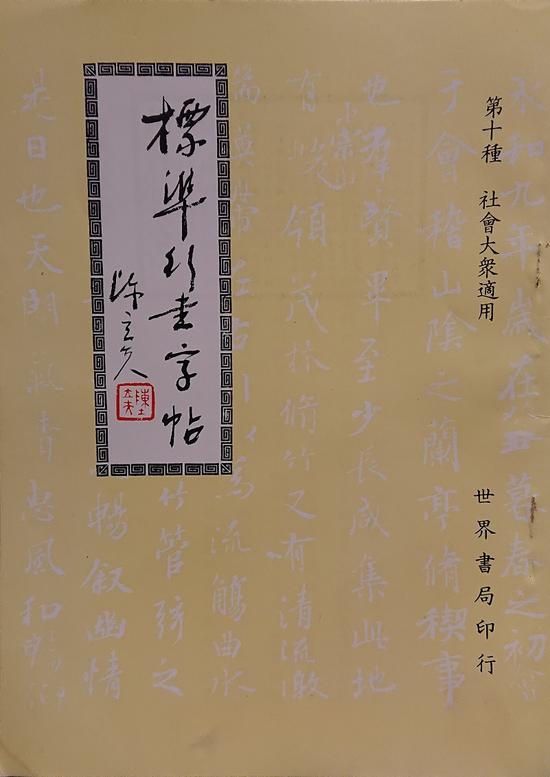 第十種 社會大衆適用
世界書局印行
標準行書字帖
陳立夫
陳立夫
永和九年歲在癸丑暮春之初會
于會稽山陰之蘭亭脩稧事
也羣賢畢至少長咸集此地
崇山
有峻領茂林脩竹又有清流激
湍暎帶左右引以為流觴曲水
竹管弦之
暢叙幽情
是日也天朗氣清惠風和暢